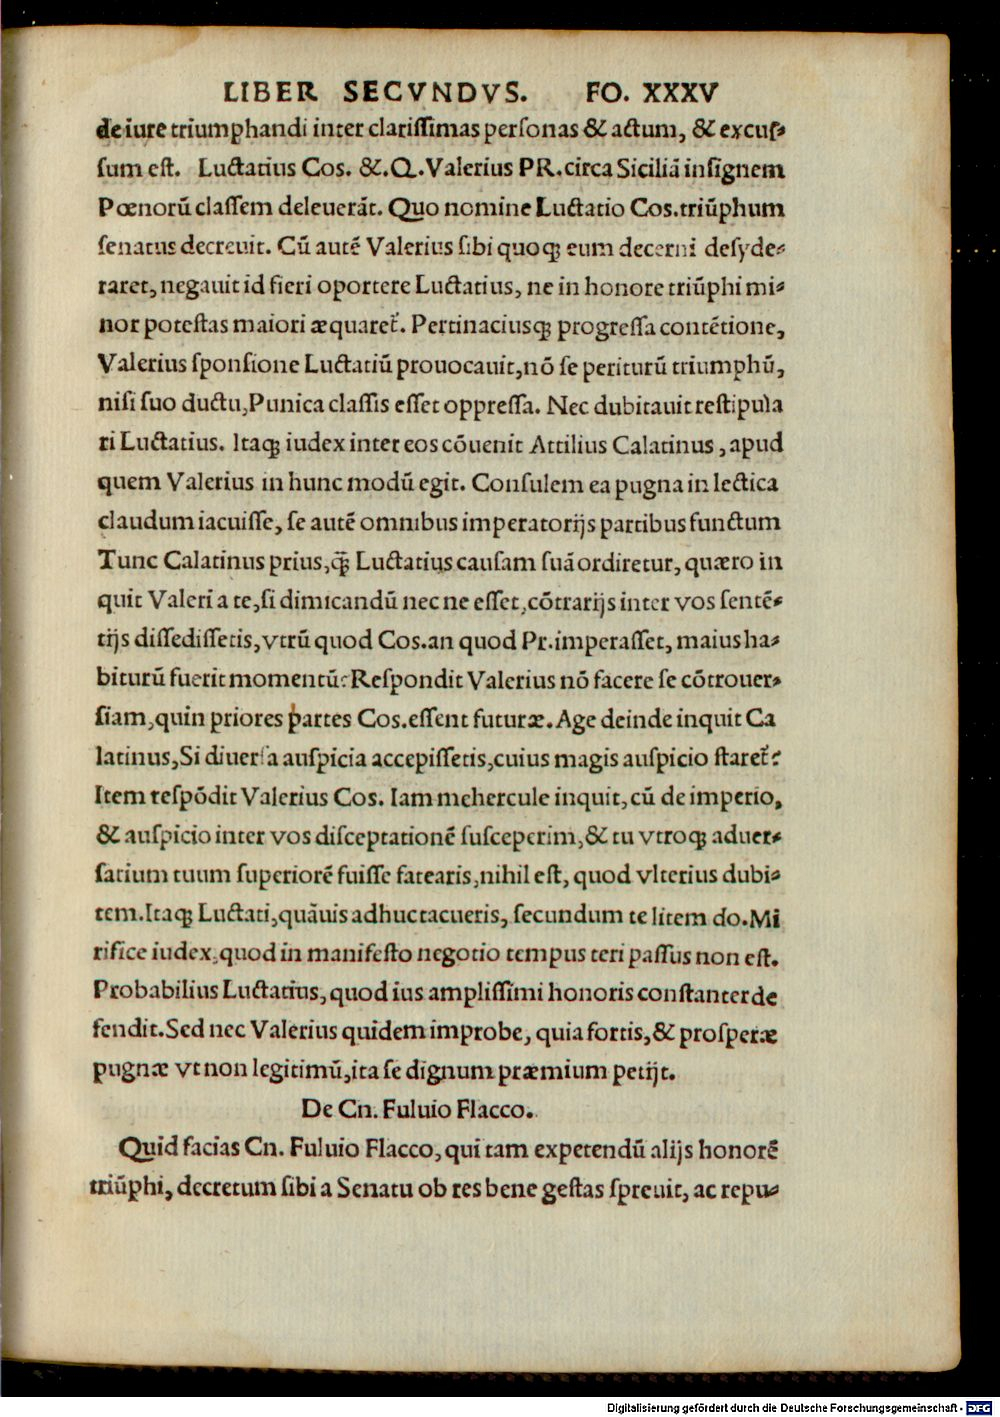 LIBER SECVNDVS. FO. XXXV
de iure triumphandi inter clarissimas personas & actum, & excus⸗
sum est. Luctatius Cos. &. Q. Valerius PR. circa Siciliā insignem
Pœnorū classem deleuerāt. Quo nomine Luctatio Cos. triūphum
senatus decreuit. Cū autē Valerius sibi quoqꝫ eum decerni desyde⸗
raret, negauit id fieri oportere Luctatius, ne in honore triūphi mi⸗
nor potestas maiori æquaret᷑. Pertinaciusqꝫ progressa contētione,
Valerius sponsione Luctatiū prouocauit, nō se periturū triumphū,
nisi suo ductu, Punica classis esset oppressa. Nec dubitauit restipula
ri Luctatius. Itaqꝫ iudex inter eos cōuenit Attilius Calatinus, apud
quem Valerius in hunc modū egit. Consulem ea pugna in lectica
claudum iacuisse, se autē omnibus imperatorijs partibus functum
Tunc Calatinus prius, q̄ꝫ Luctatius causam suā ordiretur, quæro in
quit Valeri a te, si dimicandū nec ne esset, cōtrarijs inter vos sentē⸗
tijs dissedissetis, vtrū quod Cos. an quod Pr. imperasset, maius ha⸗
biturū fuerit momentū? Respondit Valerius nō facere se cōtrouer⸗
siam, quin priores partes Cos. essent futuræ. Age deinde inquit Ca
latinus, Si diuersa auspicia accepissetis, cuius magis auspicio staret᷑?
Item respōdit Valerius Cos. Iam mehercule inquit, cū de imperio,
& auspicio inter vos disceptationē susceperim, & tu vtroqꝫ aduer⸗
sarium tuum superiorē fuisse fatearis, nihil est, quod vlterius dubi⸗
tem. Itaqꝫ Luctati, quāuis adhuc tacueris, secundum te litem do. Mi
rifice iudex, quod in manifesto negotio tempus teri passus non est.
Probabilius Luctatius, quod ius amplissimi honoris constanter de
fendit. Sed nec Valerius quidem improbe, quia fortis, & prosperæ
pugnæ vt non legitimū, ita se dignum præmium petijt.
De Cn. Fuluio Flacco.
Quid facias Cn. Fuluio Flacco, qui tam expetendū alijs honorē
triūphi, decretum sibi a Senatu ob res bene gestas spreuit, ac repu⸗
Digitalisierung gefördert durch die Deutsche Forschungsgemeinschaft - DFG